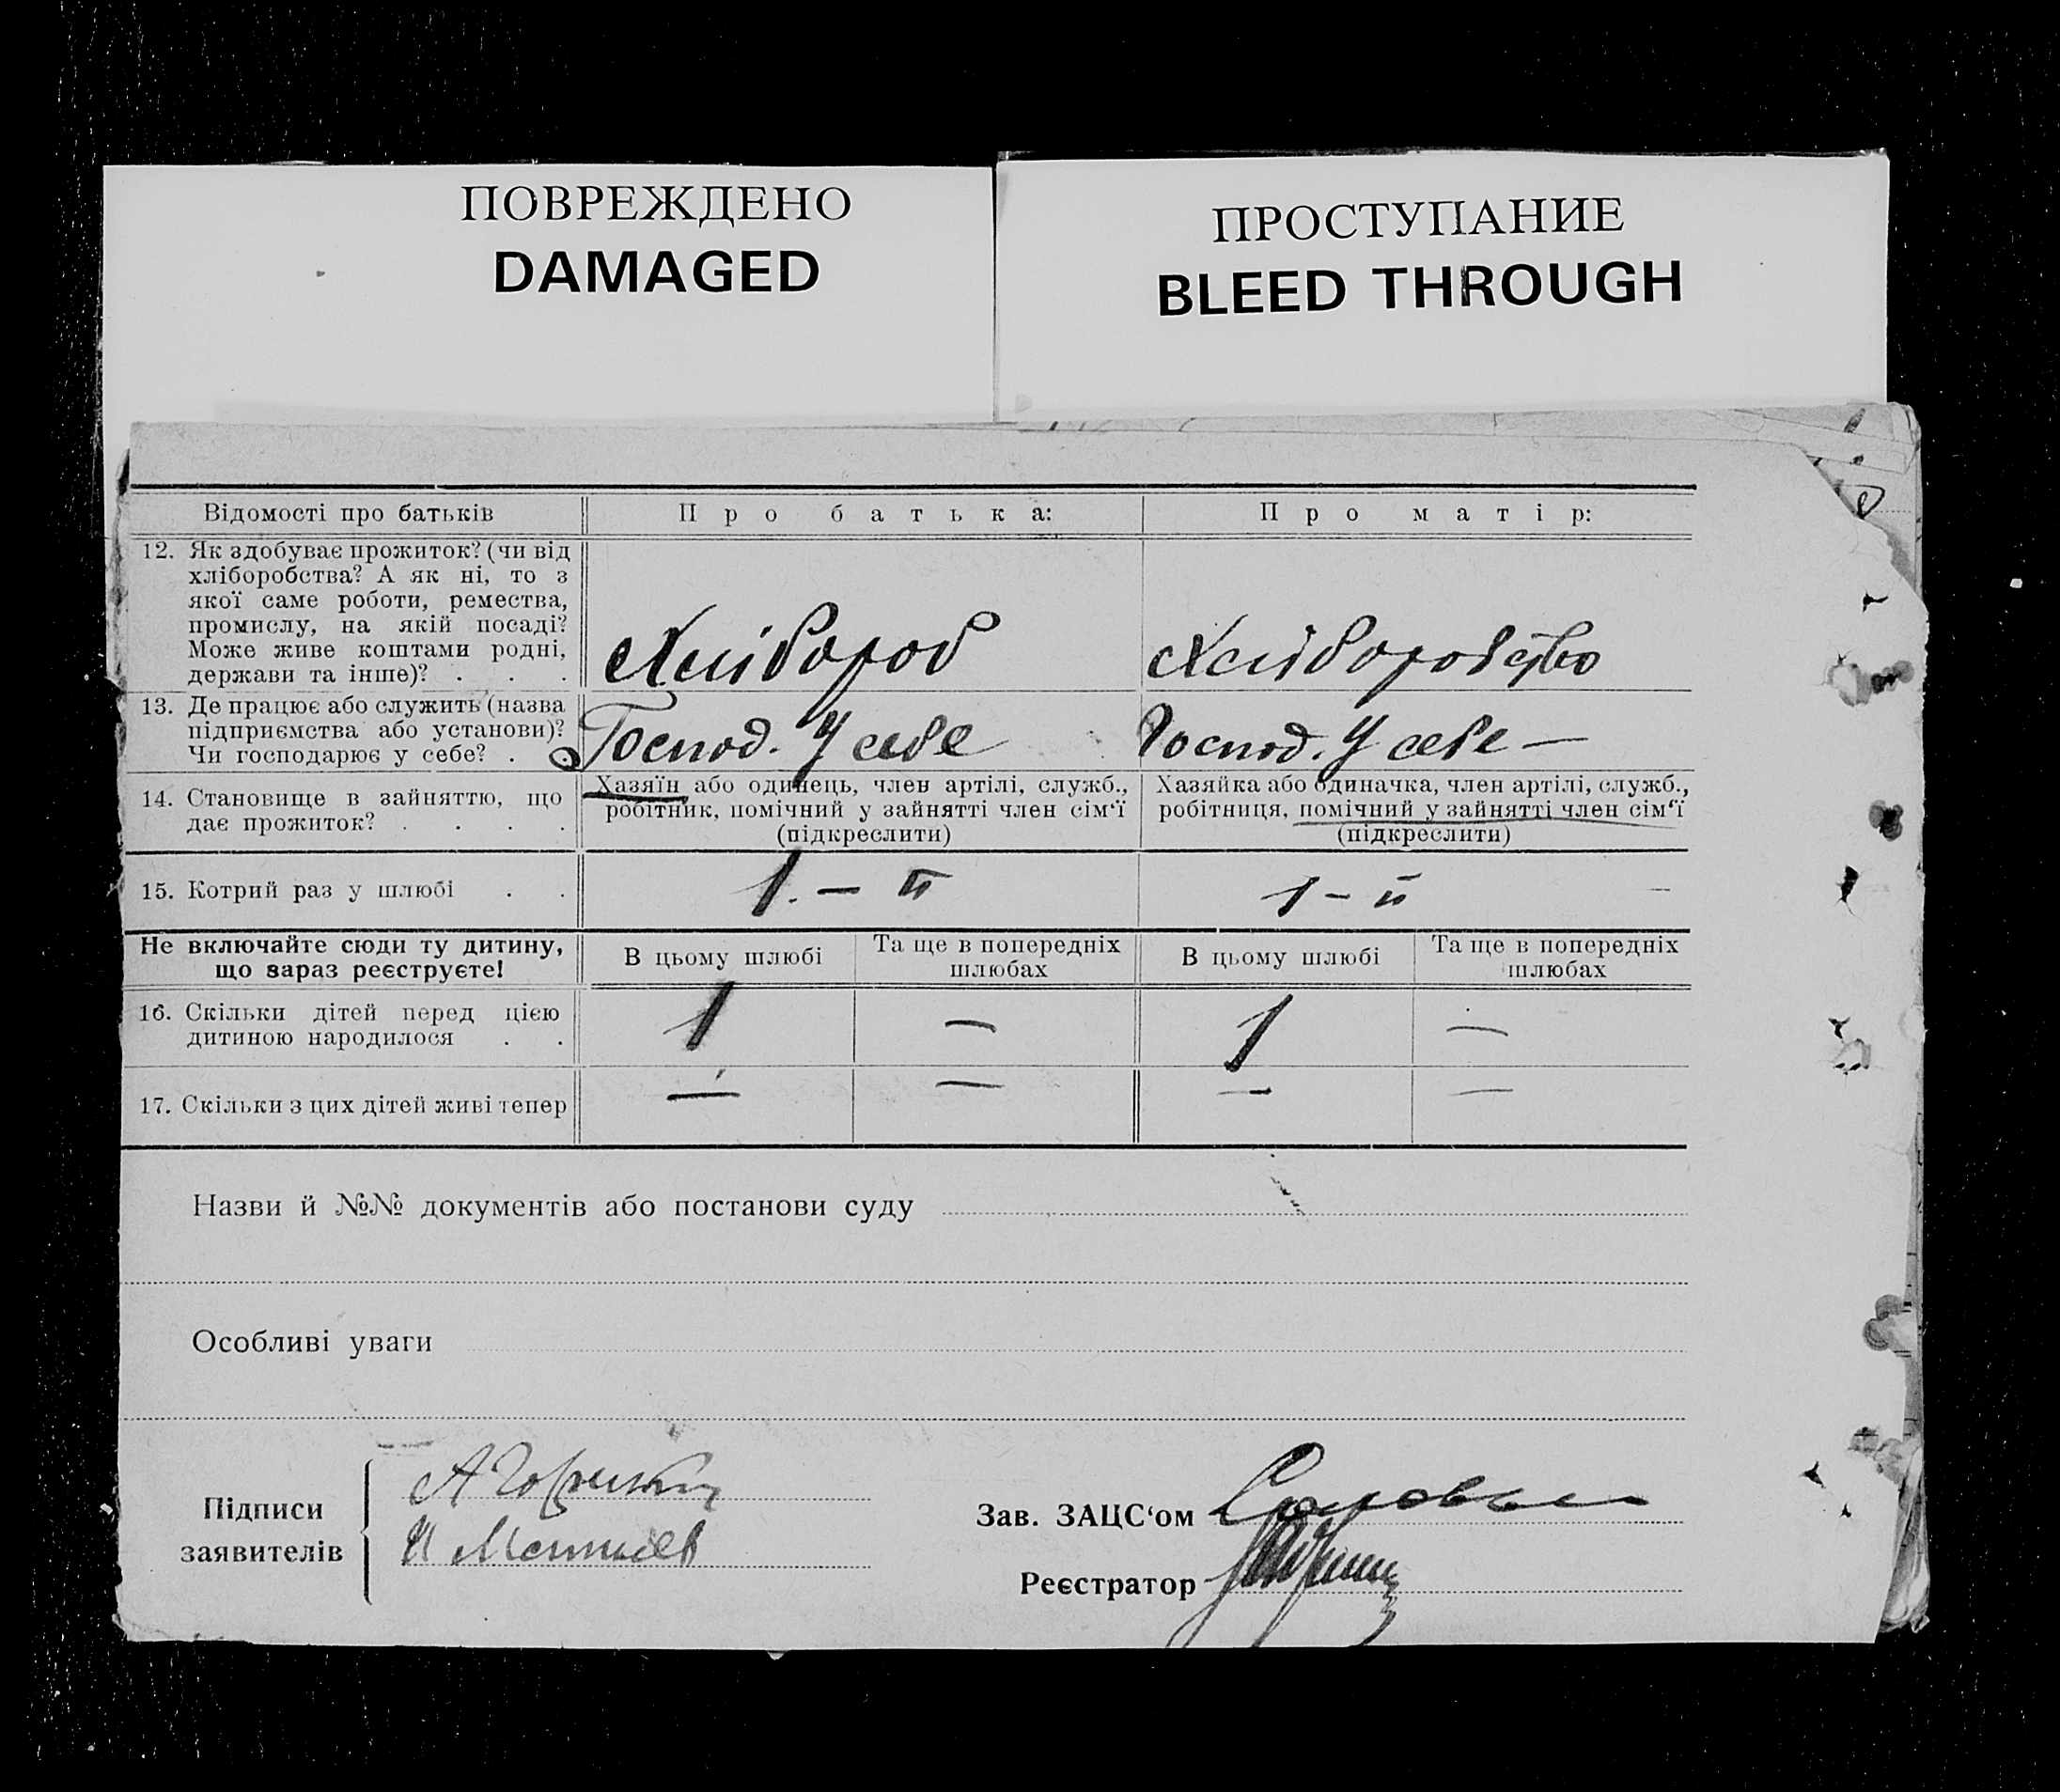 ПОВРЕЖДЕНО
DAMAGED
ПРОСТУПАНИЕ
BLEED THROUGH
Відомості про батьків
Про батька:
Про матір:
12. Як здобуває прожиток? (чи від
хліборобства? А як ні, то з
якої саме роботи, ремества,
промислу, на якій посаді?
Може живе коштами родні,
держави та інше)? . . .
Хлібороб
Хліборобство
13. Де працює або служить (назва
підприємства або установи)?
Чи господарює у себе? . .
Господ. у себе
Господ. у себе —
14. Становище в зайняттю, що
дає прожиток? . . . .
Хазяїн або одинець, член артілі, служб.,
робітник, помічний у зайнятті член сім‘ї
(підкреслити)
Хазяйка або одиначка, член артілі, служб.,
робітниця, помічний у зайнятті член сім‘ї
(підкреслити)
15. Котрий раз у шлюбі . .
1. – й
1 – й
Не включайте сюди ту дитину,
що зараз реєструєте!
В цьому шлюбі
Та ще в попередніх
шлюбах
В цьому шлюбі
Та ще в попередніх
шлюбах
16. Скільки дітей перед цією
дитиною народилося . .
1
—
1
—
17. Скільки з цих дітей живі тепер
—
—
—
—
Назви й №№ документів або постанови суду
Особливі уваги
Підписи
заявителів
Зав. ЗАЦС‘ом
Реєстратор